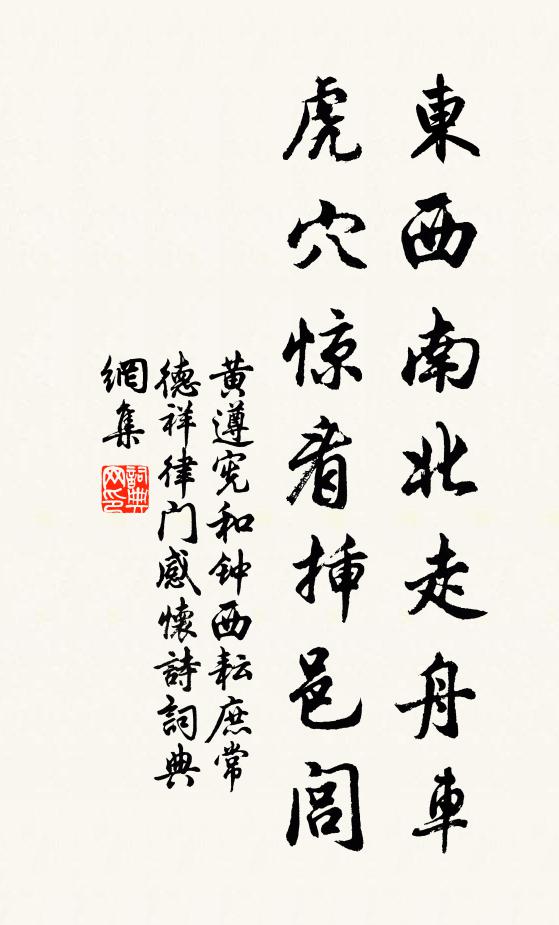 東西南北走舟車
虎穴惊看插邑闾
黄遵宪和钟西耘庶常
德祥律门感懷詩詞典
網集
詞典网印